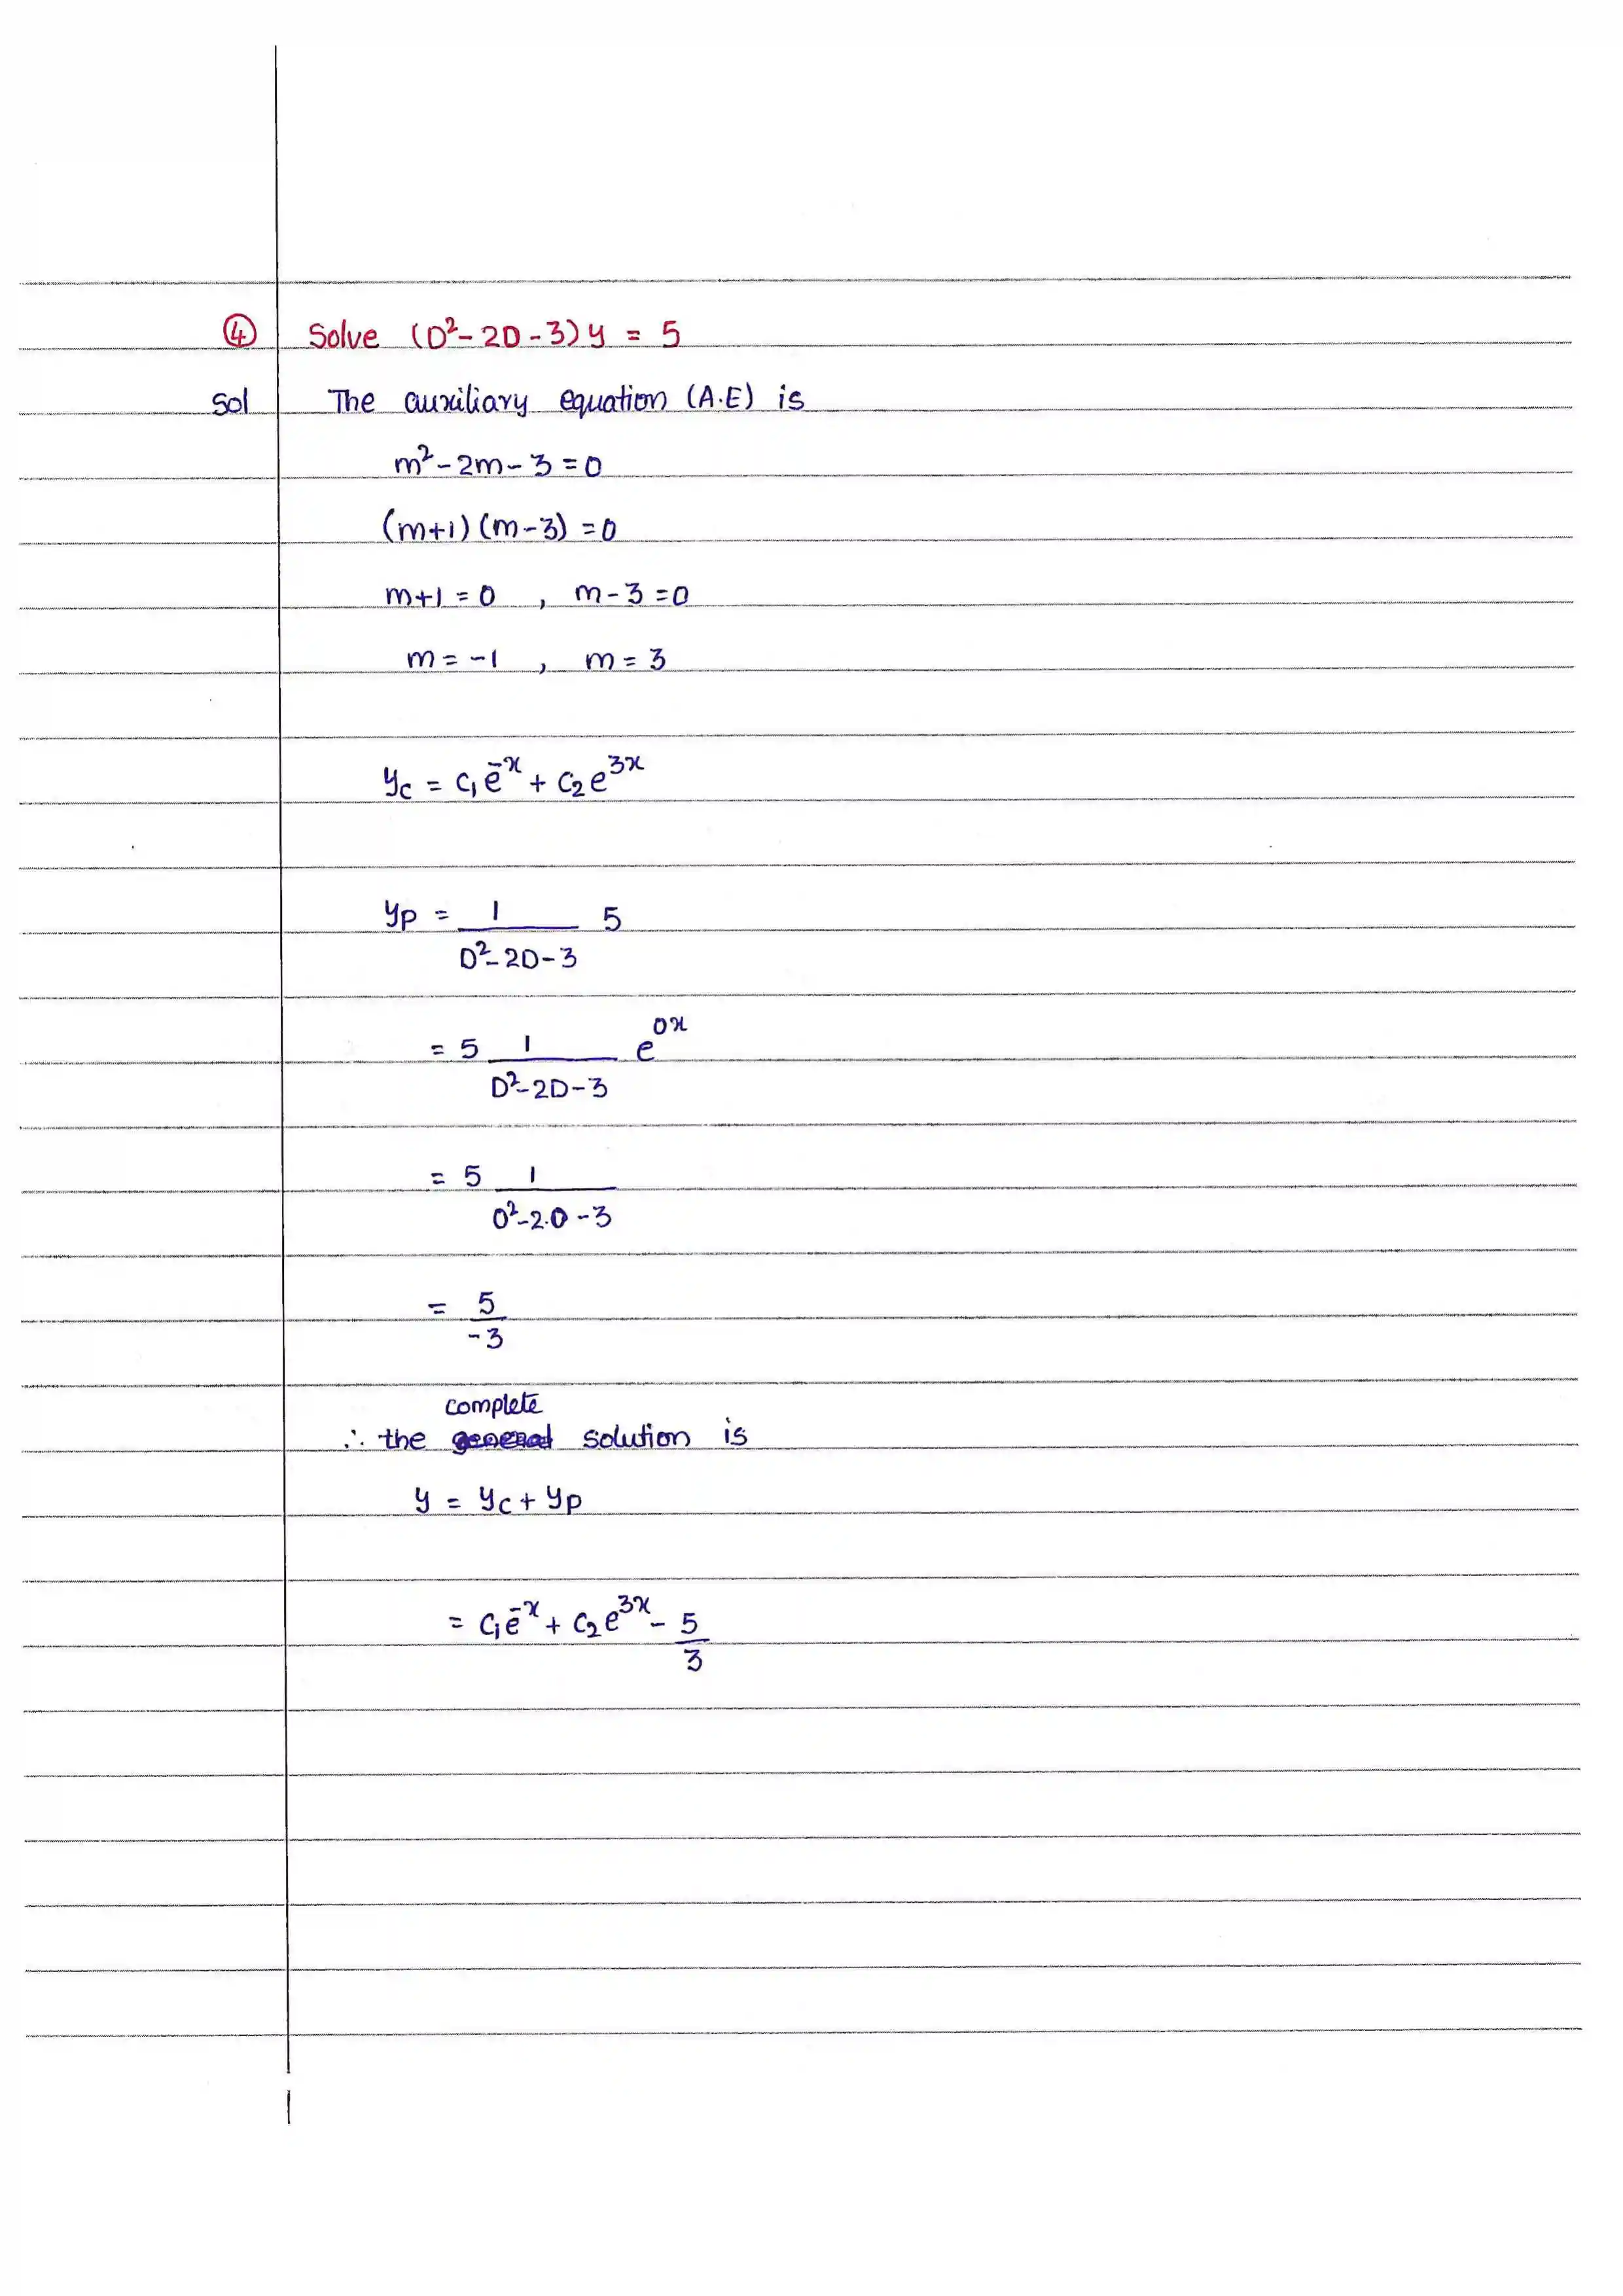 ④ Solve (D²-2D-3)y = 5
Sol The auxiliary equation (A.E) is
m²-2m-3=0
(m+1)(m-3)=0
m+1=0 , m-3=0
m=-1 , m=3
y_c = c₁e^{-x} + c₂e^{3x}
y_p = 1/(D²-2D-3) 5
= 5 1/(D²-2D-3) e^{0x}
= 5 1/(0²-2.0-3)
= 5/-3
complete
∴ the general solution is
y = y_c + y_p
= c₁e^{-x} + c₂e^{3x} - 5/3